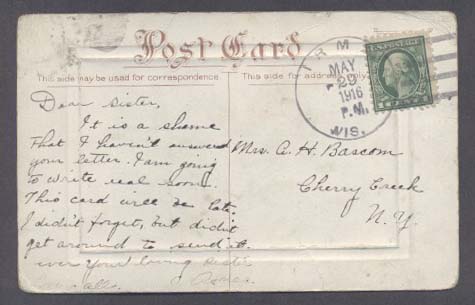 Post Card
This side may be used for correspondence.
This side for address only.
MAY
29
1916
P.M.
WIS.
U.S. POSTAGE
Dear Sister,
It is a shame
that I haven't answered
your letter. I am going
to write real soon.
This card will be late.
I didn't forget, but didn't
get around to send it.
ever your loving sister
Mrs. A. H. Bascom
Cherry Creek
N. Y.